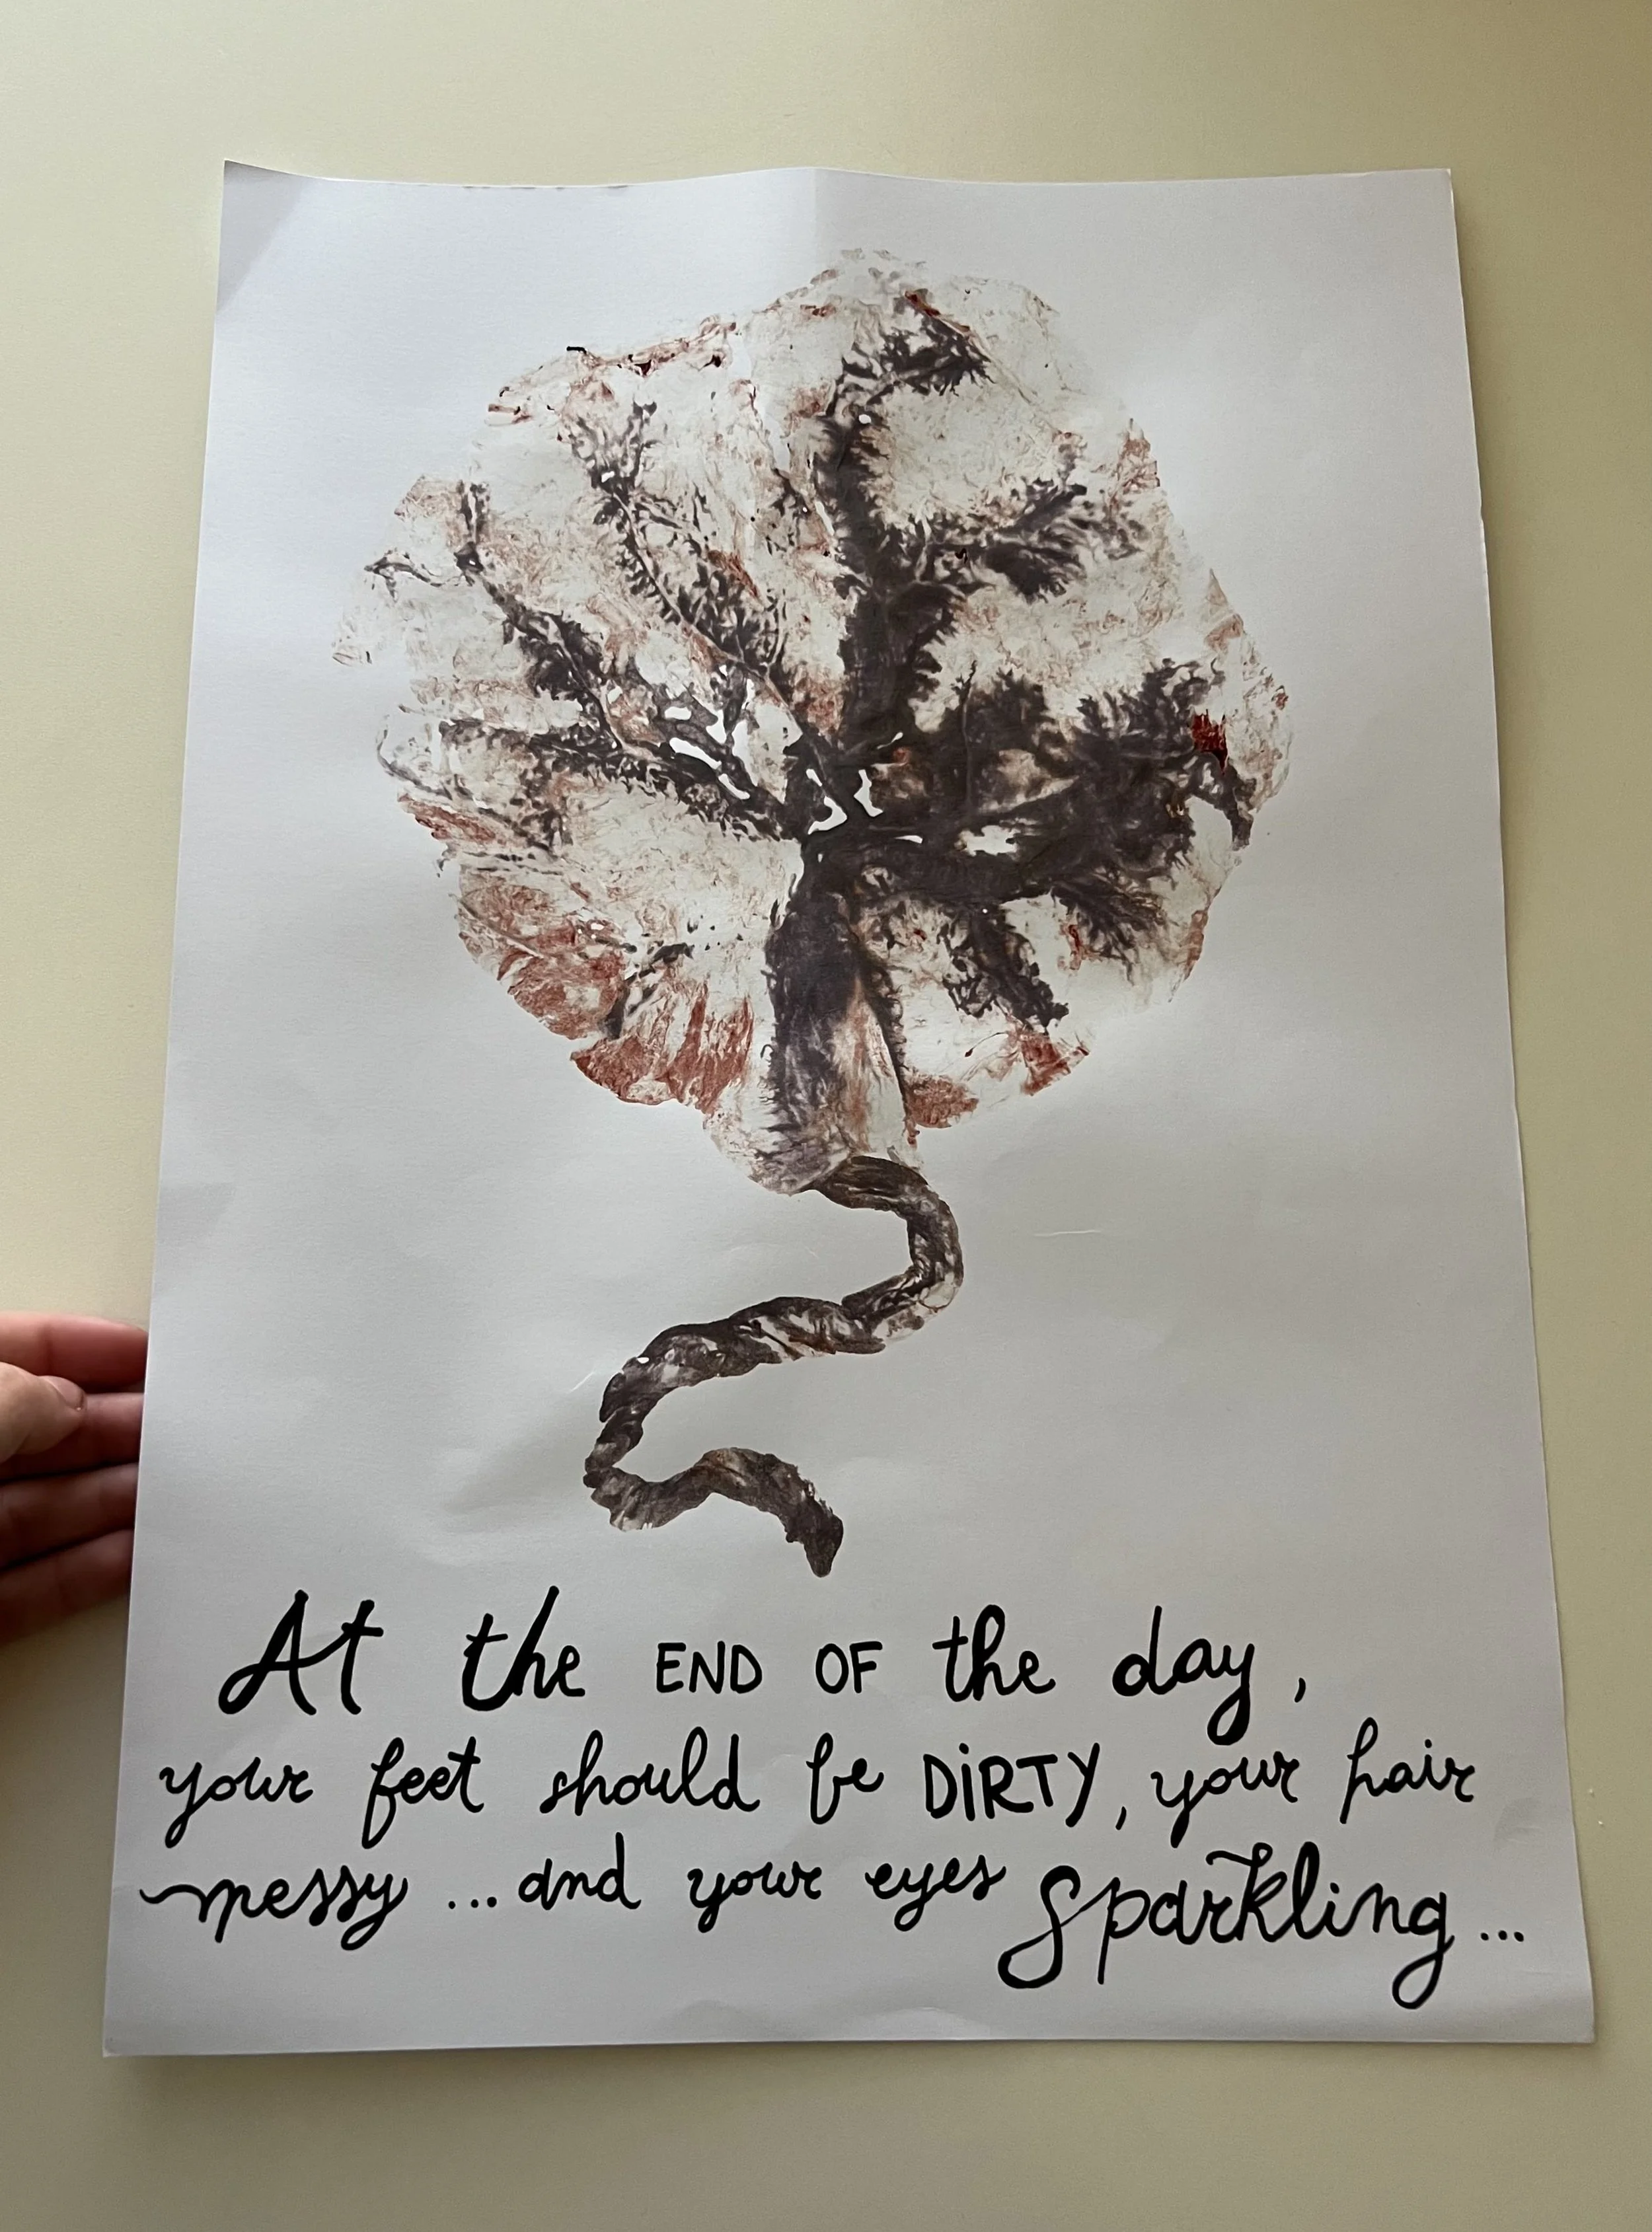 At the END OF the day,
your feet should be DiRTY, your hair
messy ... and your eyes Sparkling ...